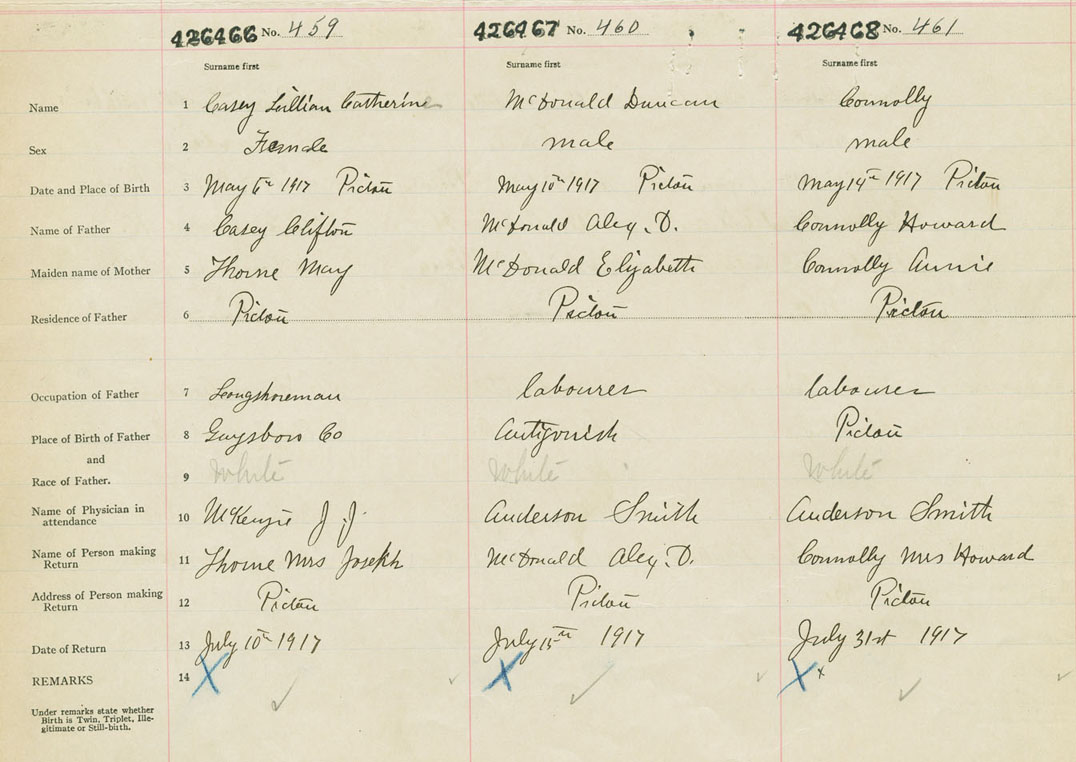 426466 No. 459 426467 No. 460 426468 No. 461
Surname first Surname first Surname first
Name 1 Casey Lillian Catherine McDonald Duncan Connolly
Sex 2 Female male male
Date and Place of Birth 3 May 1917 Pictou May 10th 1917 Pictou May 14th 1917 Pictou
Name of Father 4 Casey Clifton McDonald Alex. D. Connolly Howard
Maiden name of Mother 5 Thorne May McDonald Elizabeth Connolly Annie
Residence of Father 6 Pictou Pictou Pictou
Occupation of Father 7 Longshoreman labourer labourer
Place of Birth of Father 8 Guysboro Co Antigonish Pictou
and
Race of Father. 9 White White White
Name of Physician in
attendance 10 McKenzie J. J. Anderson Smith Anderson Smith
Name of Person making
Return 11 Thorne Mrs Joseph McDonald Alex. D. Connolly Mrs Howard
Address of Person making
Return 12 Pictou Pictou Pictou
Date of Return 13 July 10th 1917 July 15th 1917 July 31st 1917
REMARKS 14 X X X x
Under remarks state whether
Birth is Twin, Triplet, Ille-
gitimate or Still-birth.